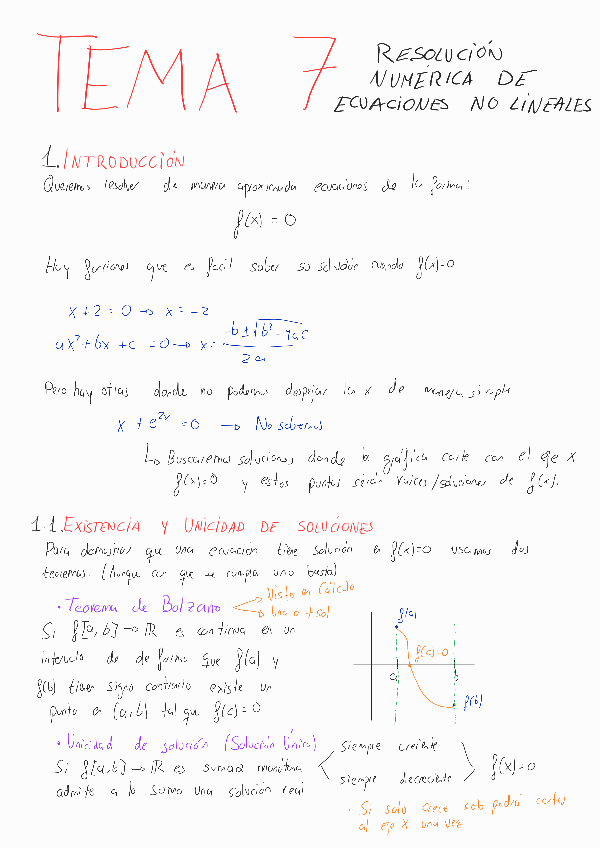 TEMA 7
RESOLUCIÓN
NUMÉRICA DE
ECUACIONES NO LINEALES
1. INTRODUCCIÓN
Queremos resolver de manera aproximada ecuaciones de la forma:
f(x) = 0
Hay funciones que es fácil saber su solución cuando f(x)=0
x + 2 = 0 → x = -2
ax²+bx+c = 0 → x = -b ± √b² - 4ac / 2a
Pero hay otras donde no podemos despejar la x de manera simple
x + e^2x = 0 → No sabemos
↳ Buscaremos soluciones donde la gráfica corte con el eje X
f(x)=0 y estos puntos serán raíces/soluciones de f(x).
1.1. EXISTENCIA Y UNICIDAD DE SOLUCIONES
Para demostrar que una ecuación tiene solución en f(x)=0 usamos dos
teoremas. (Aunque con que se cumpla uno basta)
• Teorema de Bolzano
Visto en Cálculo
Una o + sol
Si f[a,b] → ℝ es continua en un
intervalo de de forma que f(a) y
f(b) tienen signo contrario existe un
punto en (a,b) tal que f(c)=0
f(a)
f(c)=0
a
b
f(b)
• Unicidad de solución (Solución Única)
Si f[a,b] → ℝ es monótona
admite a lo sumo una solución real
siempre creciente
siempre decreciente
f(x)=0
• Si solo crece solo podrá cortar
al eje X una vez